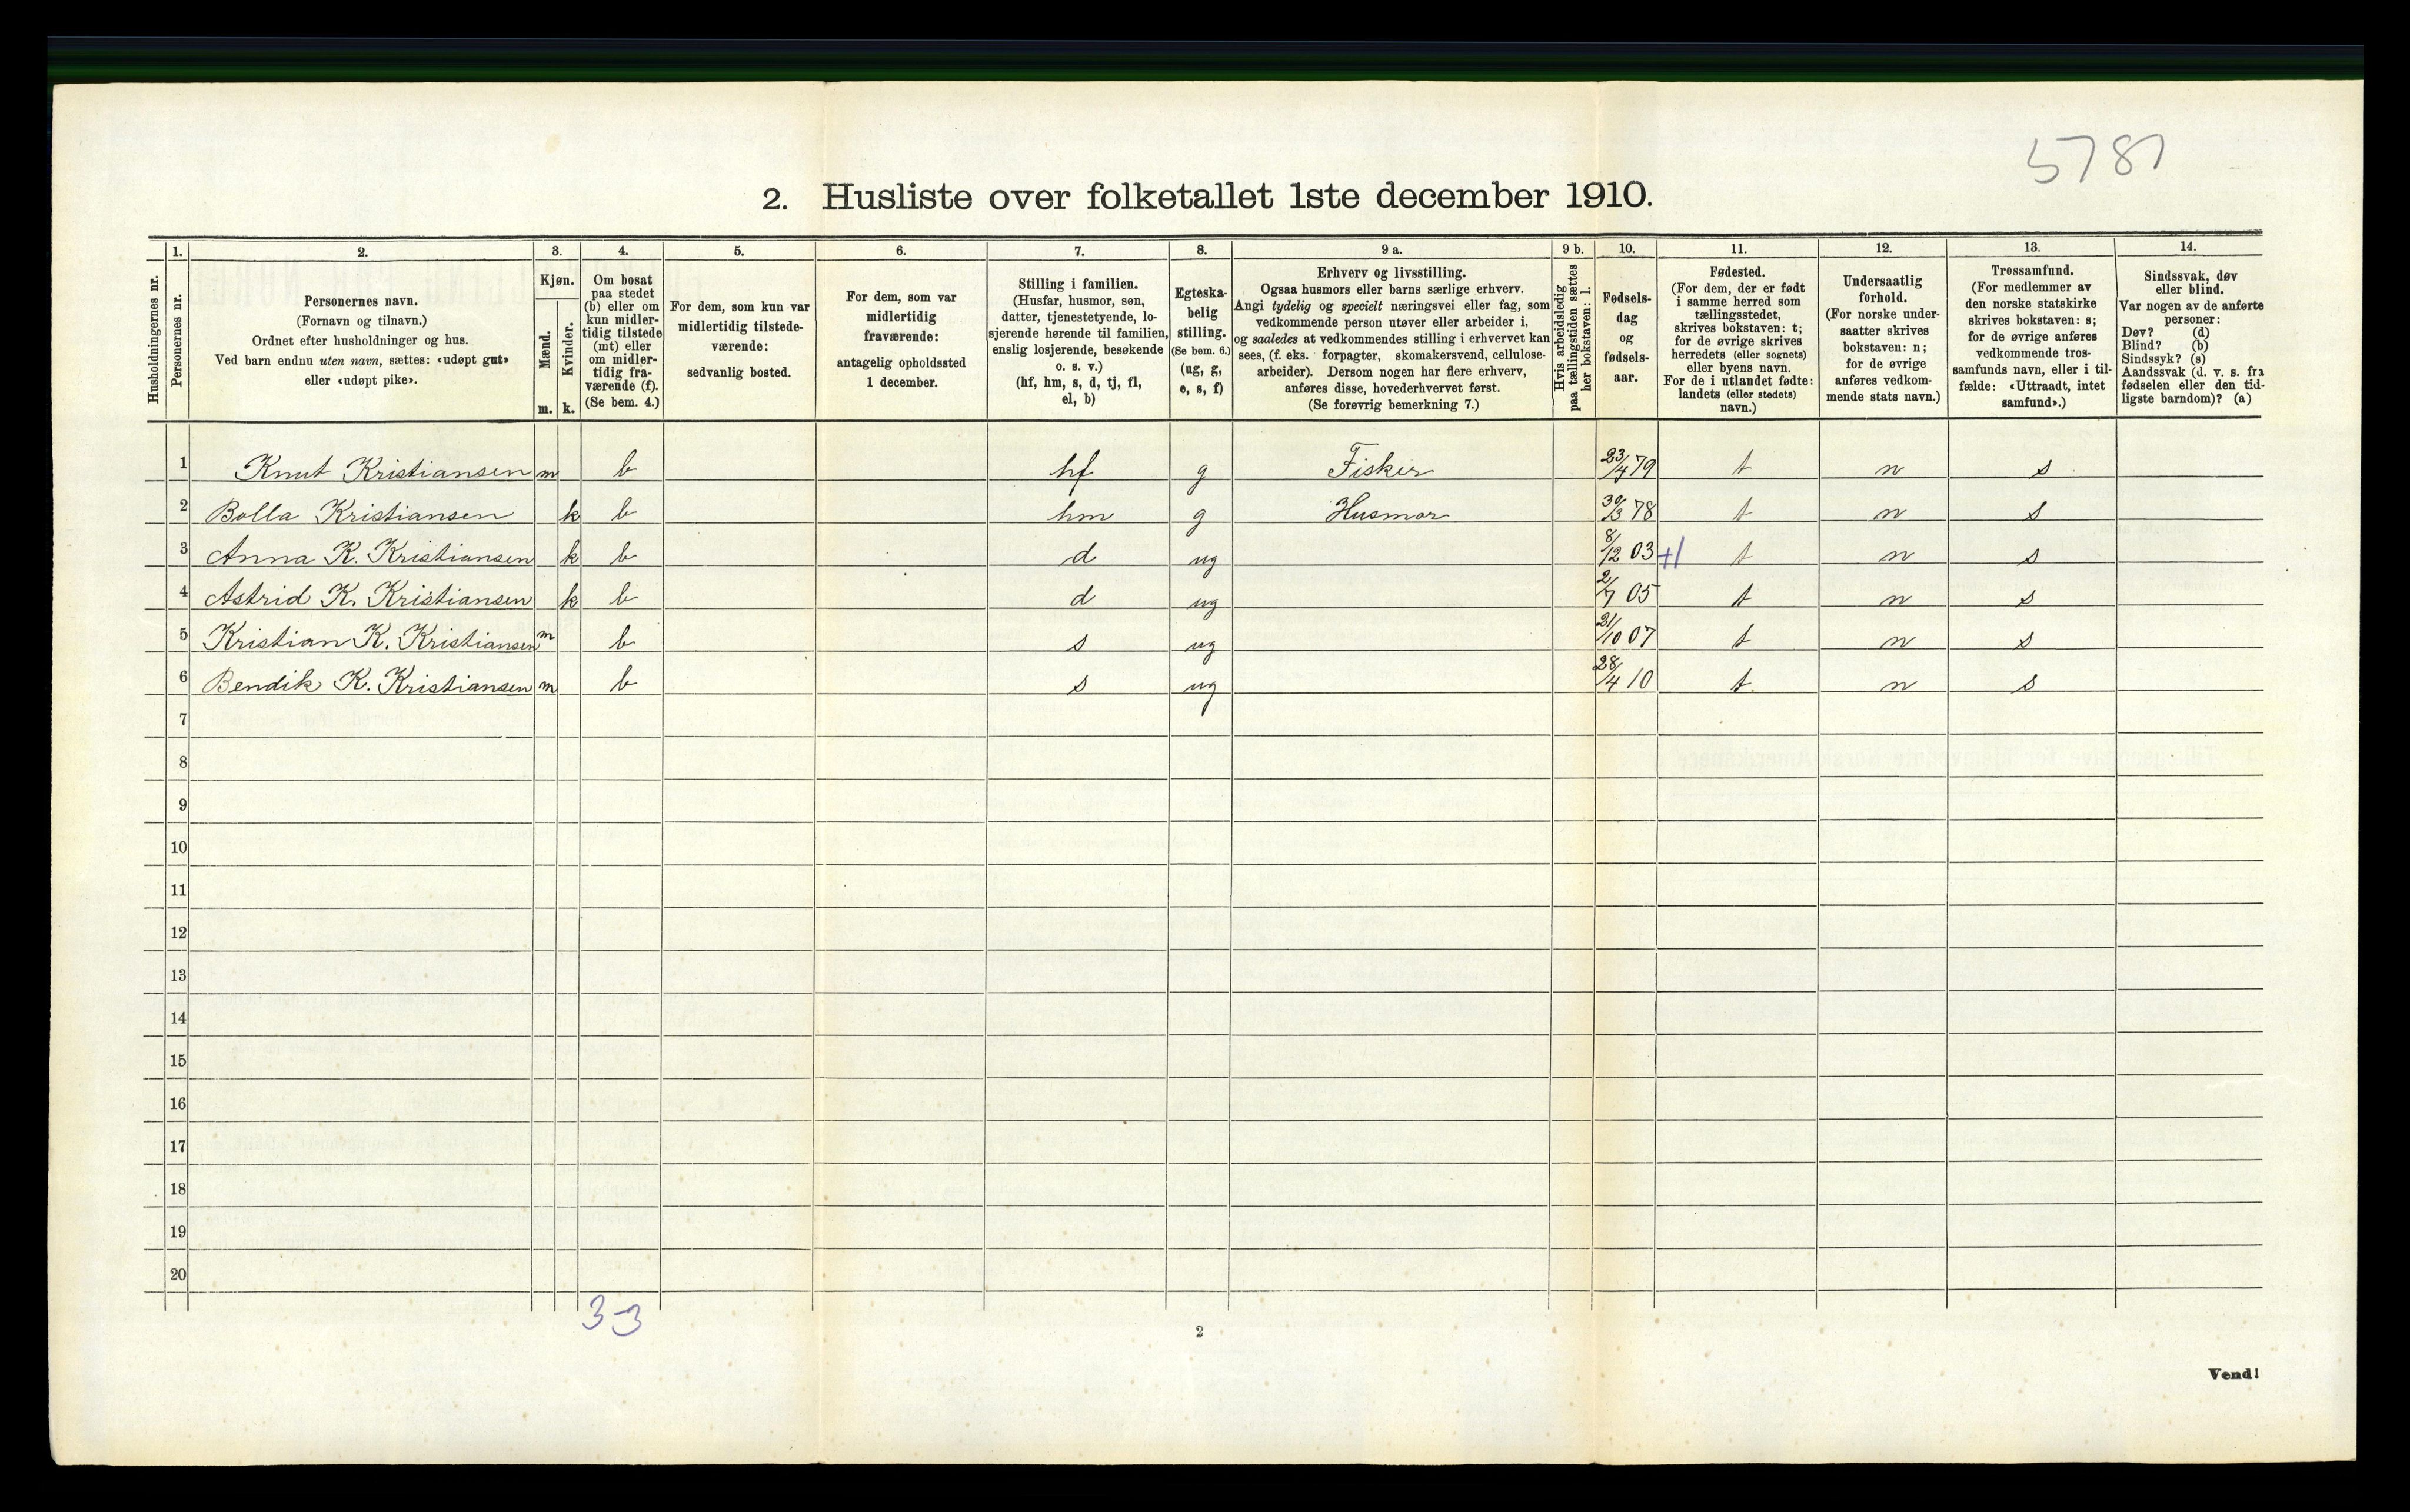 5781
2. Husliste over folketallet 1ste december 1910.
1. 2. 3. 4. 5. 6. 7. 8. 9 a. 9 b. 10. 11. 12. 13. 14.
Husholdningernes nr.
Personernes nr.
Personernes navn.
(Fornavn og tilnavn.)
Ordnet efter husholdninger og hus.
Ved barn endnu uten navn, sættes: «udøpt gut»
eller «udøpt pike».
Kjøn.
Mænd.
Kvinder.
m. k.
Om bosat
paa stedet
(b) eller om
kun midler-
tidig tilstede
(mt) eller
om midler-
tidig fra-
værende (f).
(Se bem. 4.)
For dem, som kun var
midlertidig tilstede-
værende:
sedvanlig bosted.
For dem, som var
midlertidig
fraværende:
antagelig opholdssted
1 december.
Stilling i familien.
(Husfar, husmor, søn,
datter, tjenestetyende, lo-
sjerende hørende til familien,
enslig losjerende, besøkende
o. s. v.)
(hf, hm, s, d, tj, fl,
el, b)
Egteska-
belig
stilling.
(Se bem. 6.)
(ug, g,
e, s, f)
Erhverv og livsstilling.
Ogsaa husmors eller barns særlige erhverv.
Angi tydelig og specielt næringsvei eller fag, som
vedkommende person utøver eller arbeider i,
og saaledes at vedkommendes stilling i erhvervet kan
sees, (f. eks. forpagter, skomakersvend, cellulose-
arbeider). Dersom nogen har flere erhverv,
anføres disse, hovederhvervet først.
(Se forøvrig bemerkning 7.)
Hvis arbeidsledig
paa tællingstiden sættes
her bokstaven: l.
Fødsels-
dag
og
fødsels-
aar.
Fødested.
(For dem, der er født
i samme herred som
tællingsstedet,
skrives bokstaven: t;
for de øvrige skrives
herredets (eller sognets)
eller byens navn.
For de i utlandet fødte:
landets (eller stedets)
navn.)
Undersaatlig
forhold.
(For norske under-
saatter skrives
bokstaven: n;
for de øvrige
anføres vedkom-
mende stats navn.)
Trossamfund.
(For medlemmer av
den norske statskirke
skrives bokstaven: s;
for de øvrige anføres
vedkommende tros-
samfunds navn, eller i til-
fælde: «Uttraadt, intet
samfund».)
Sindssvak, døv
eller blind.
Var nogen av de anførte
personer:
Døv? (d)
Blind? (b)
Sindssyk? (s)
Aandssvak (d. v. s. fra
fødselen eller den tid-
ligste barndom)? (a)
1 Knut Kristiansen m b hf g Fisker 23/4 79 t n s
2 Bolla Kristiansen k b hm g Husmor 30/3 78 t n s
3 Anna K. Kristiansen k b d ug 8/12 03 +1 t n s
4 Astrid K. Kristiansen k b d ug 2/7 05 t n s
5 Kristian K. Kristiansen m b s ug 21/10 07 t n s
6 Bendik K. Kristiansen m b s ug 28/4 10 t n s
7
8
9
10
11
12
13
14
15
16
17
18
19
20
3-3
2
Vend!